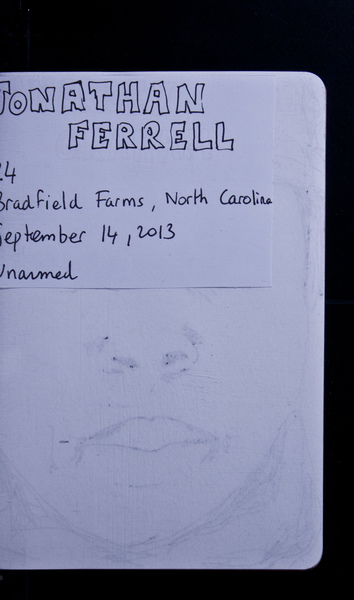 JONATHAN
FERRELL
24
Bradfield Farms, North Carolina
September 14, 2013
Unarmed